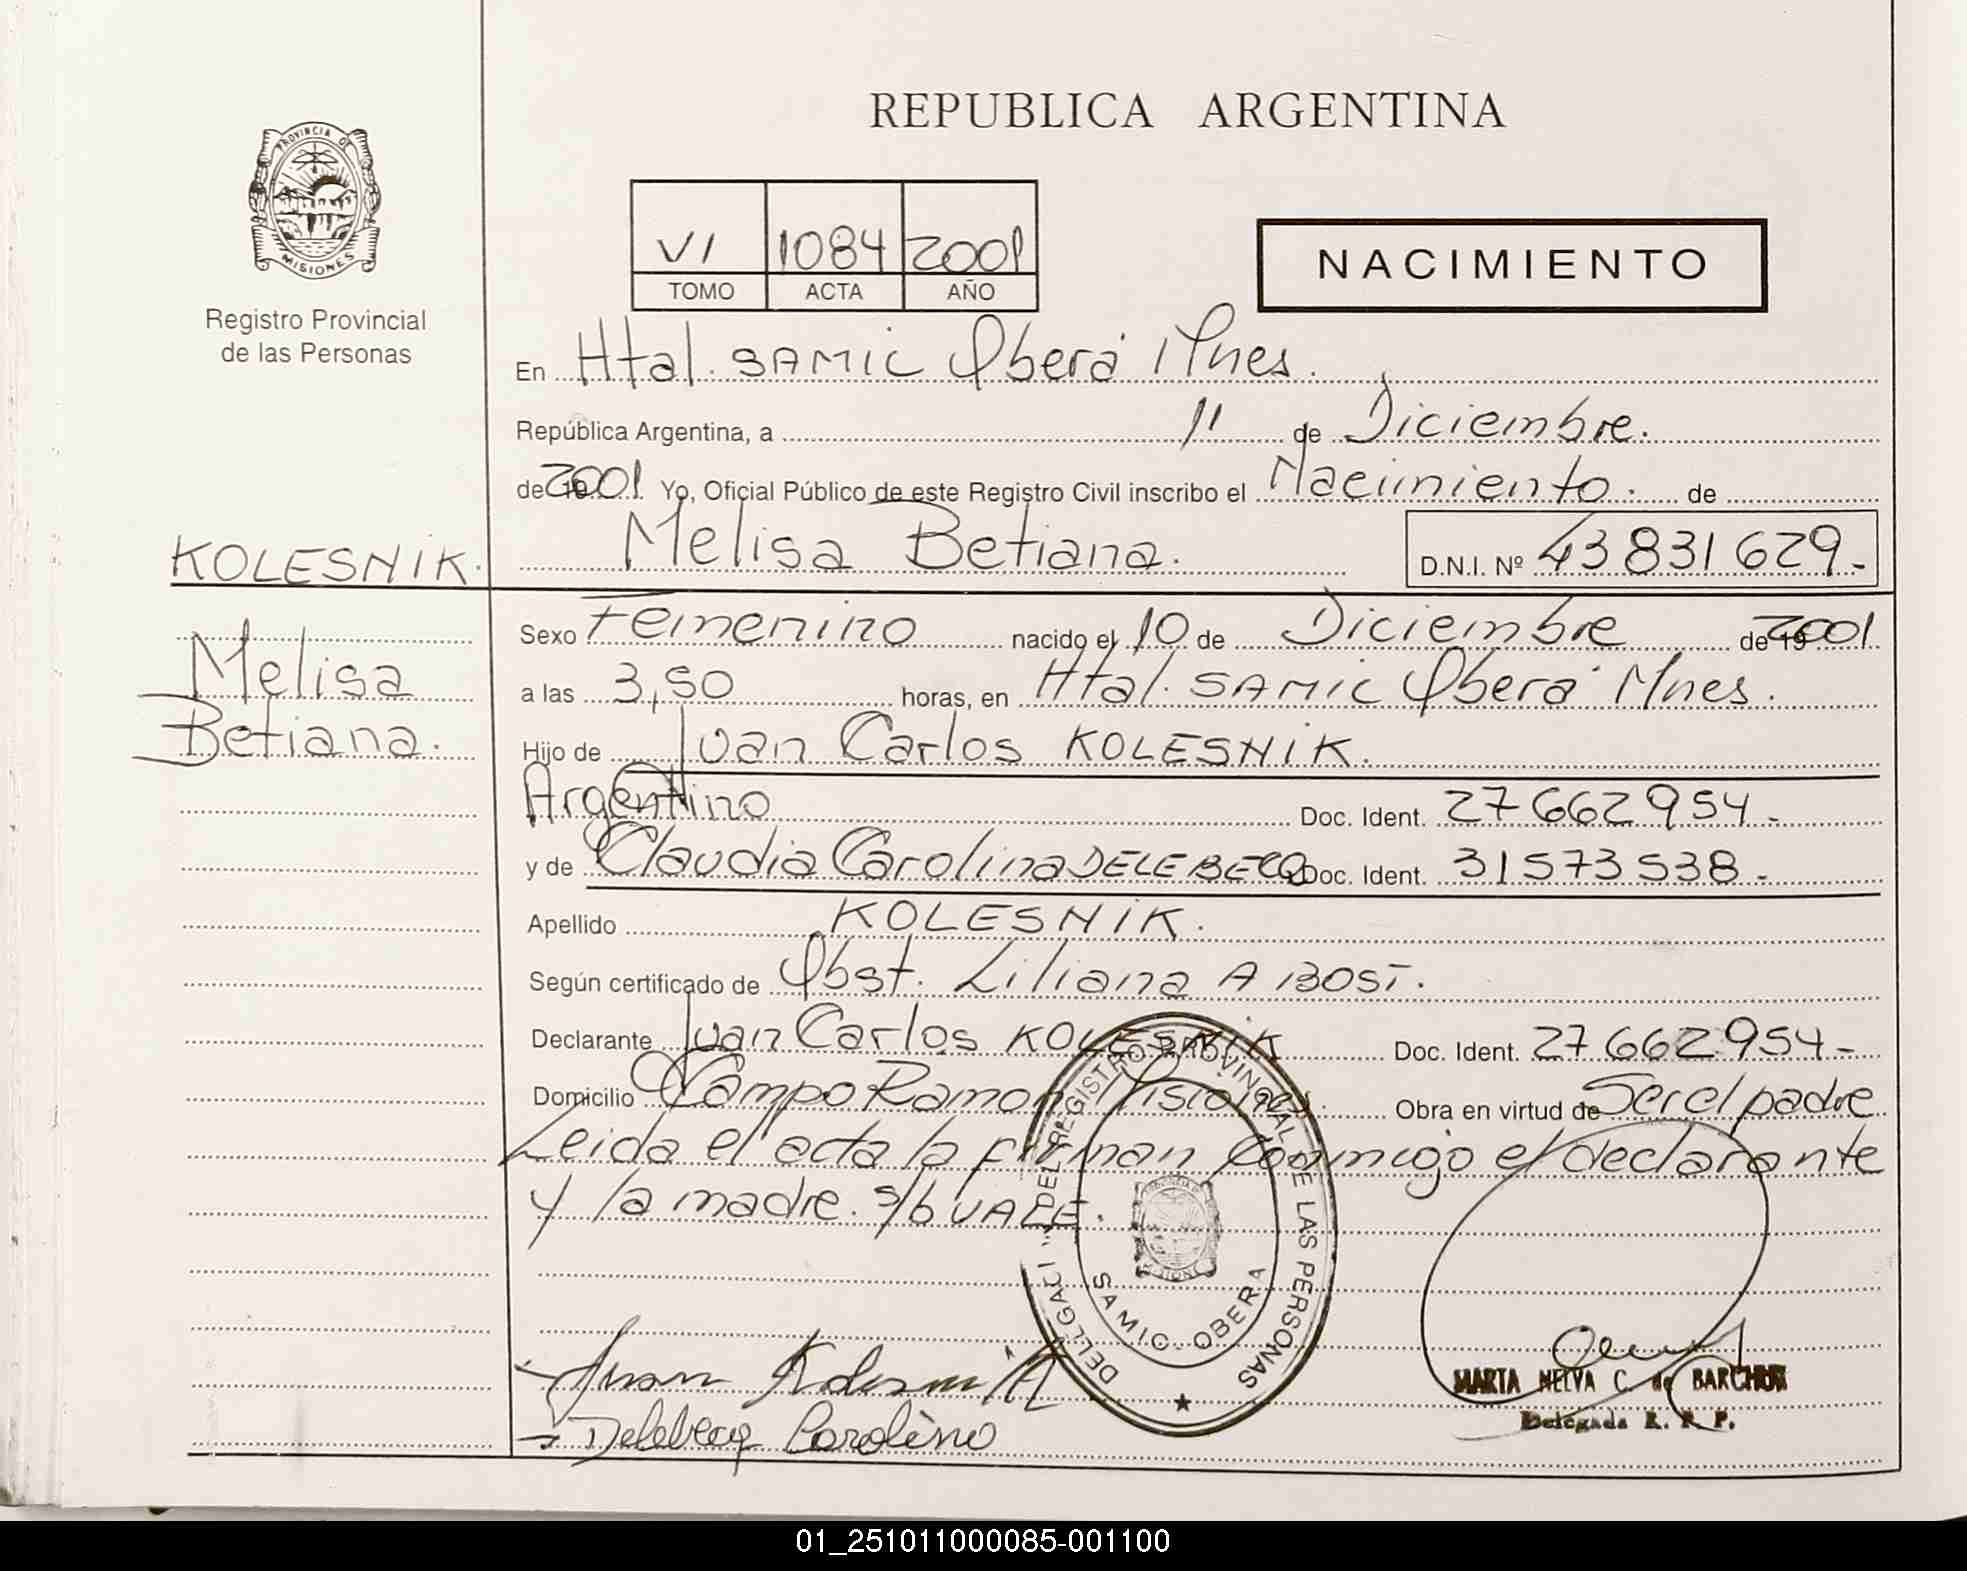 REPUBLICA ARGENTINA
PROVINCIA DE
MISIONES
Registro Provincial
de las Personas
VI 1084 2001
TOMO ACTA AÑO
NACIMIENTO
En Htal. SAMIC Oberá Mnes.
República Argentina, a 11 de Diciembre.
de 2001 Yo, Oficial Público de este Registro Civil inscribo el Nacimiento. de
KOLESNIK.
Melisa Betiana. D.N.I. Nº 43831629.-
Melisa
Betiana.
Sexo Femenino nacido el 10 de Diciembre de 19 2001
a las 3,50 horas, en Htal. SAMIC Oberá Mnes.
Hijo de Juan Carlos KOLESNIK.
Argentino Doc. Ident. 27662954.-
y de Claudia Carolina DELEBECQ Doc. Ident. 31573538.-
Apellido KOLESNIK.
Según certificado de Obst. Liliana A BOST.
Declarante Juan Carlos KOLESNIK Doc. Ident. 27662954-
Domicilio Campo Ramon Misiones. Obra en virtud de Ser el padre
Leida el acta la firman conmigo el declarante
y la madre. s/b VALE.
REGISTRO PROVINCIAL DE LAS PERSONAS
SAMIC OBERA
Juan Kolesnik
Delebecq Carolina
MARTA NELVA C. de
Delegada R. P. P.
01_251011000085-001100